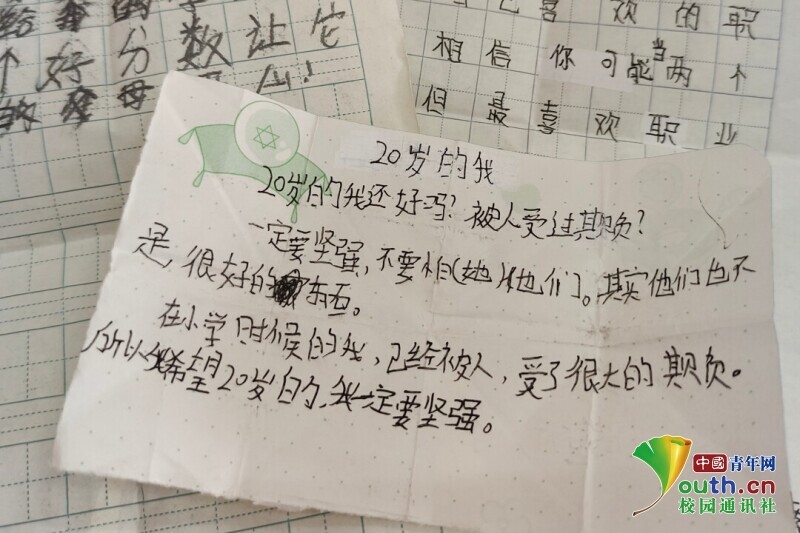 个好分数让它
喜欢的职
相信你可能当两个
但最喜欢职业
20岁的我
20岁的我还好吗?被人受过欺负?
一定要坚强,不要怕(她)他们。其实他们也不
是,很好的东西。
在小学时候的我,已经被人,受了很大的欺负。
所以我希望20岁的,我一定要坚强。
中國青年网
youth.cn
校园通讯社